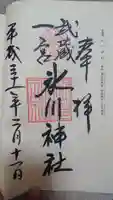 奉拝
武蔵
一宮
氷川神社
平成三十一年二月十一日